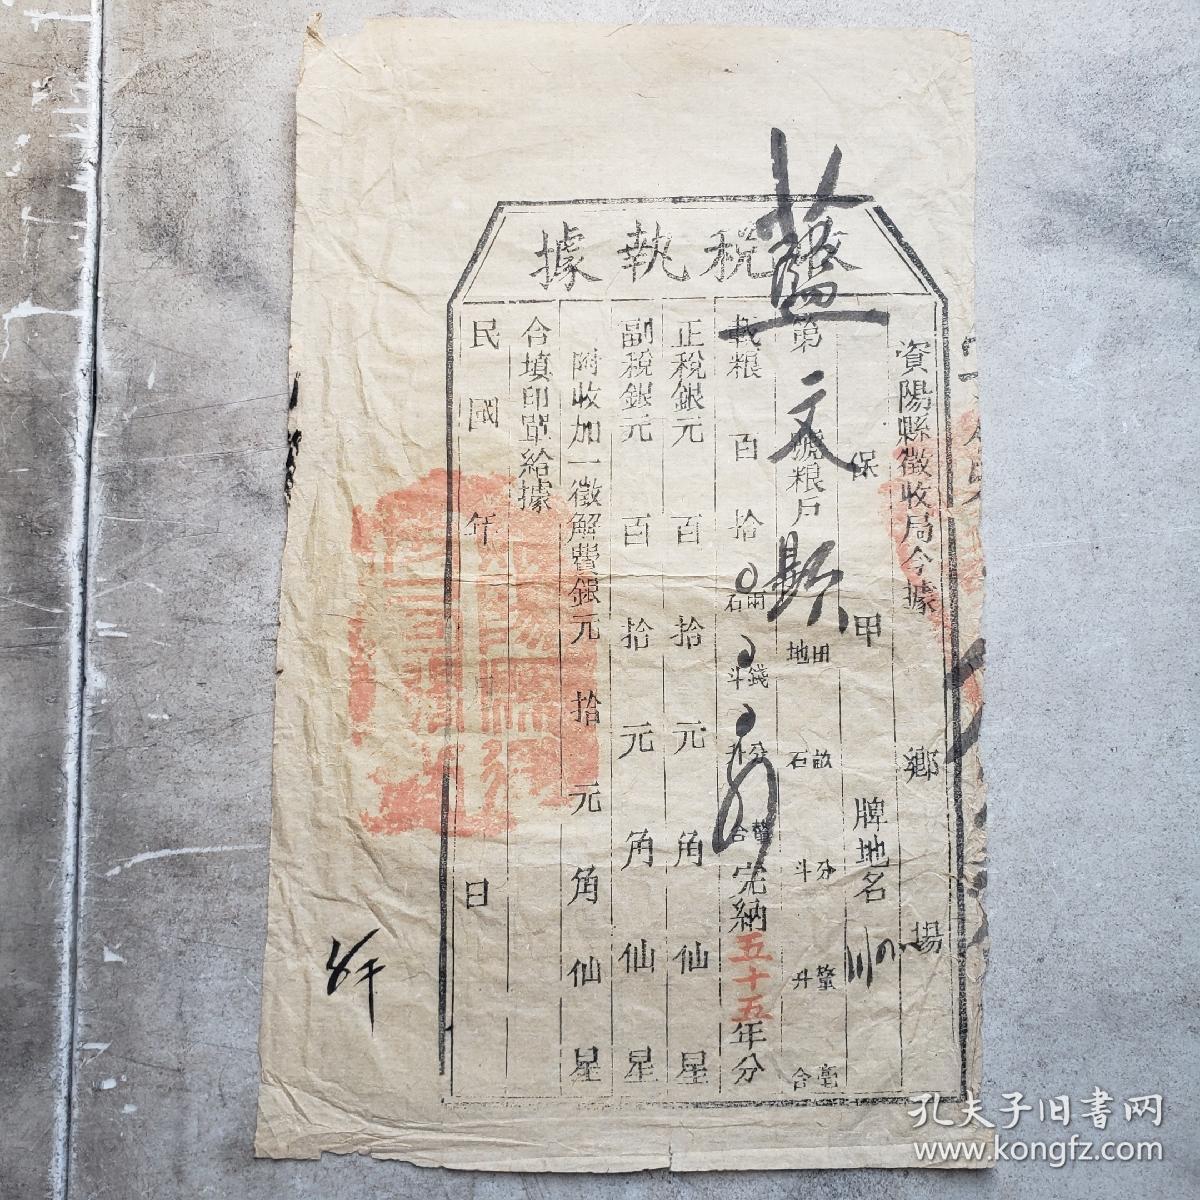 稅執據
資陽縣徵收局今據 鄉 場
保 甲 牌地名
第 號粮戶 田地 畝石 分斗 釐升 毫合
藍文顯
載粮 百 拾 兩石 錢斗 分升 釐合 完納五十五年分
正稅銀元 百 拾 元 角 仙 星
副稅銀元 百 拾 元 角 仙 星
附收加一徵解費銀元 拾 元 角 仙 星
合填印單給據
民國 年 月 日
孔夫子旧書网
www.kongfz.com